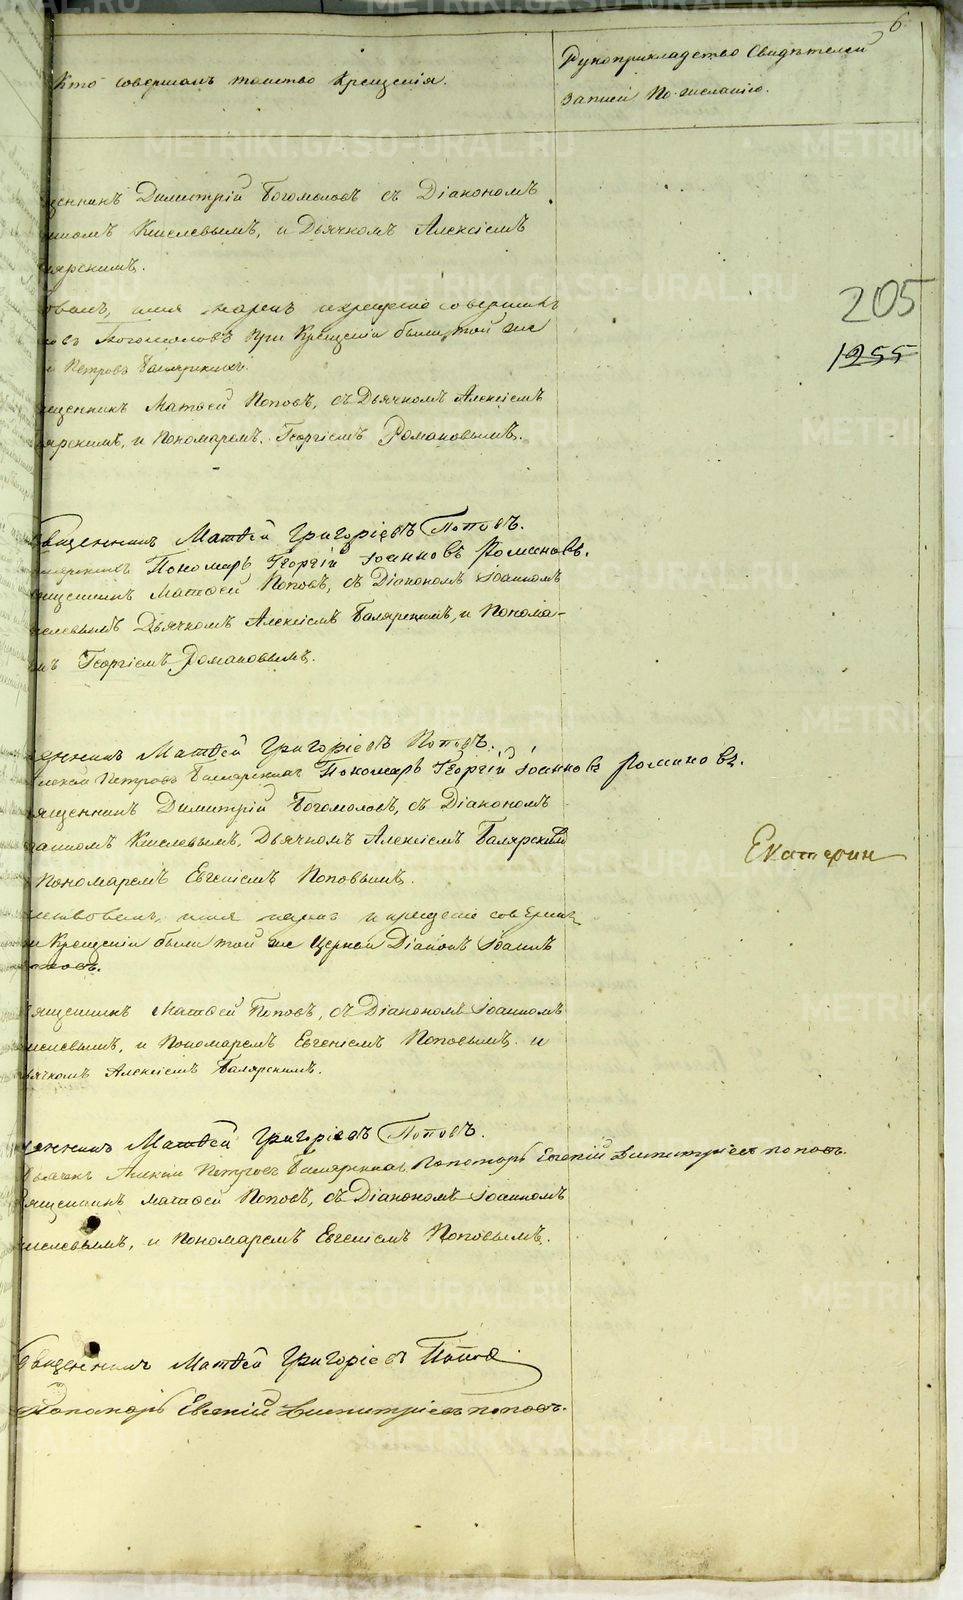 6
Кто совершалъ таинство Крещенія.
Рукоприкладство Свидѣтелей
Записи по желанію.
щенникъ Димитрій Богомоловъ съ Діакономъ
Киселевымъ, и Дьячкомъ Алексіемъ
205
имя нарекъ и крещеніе совершилъ
Богомоловъ при Крещеніи были той же
1255
и Петровъ Баляринихъ.
щенникъ Матѳей Поповъ, съ Дьячкомъ Алексіемъ
ярскимъ, и Пономаремъ Георгіемъ Романовымъ.
Священникъ Матѳей Григоріевъ Поповъ.
Пономарь Георгій Іоанновъ Романовъ.
щенникъ Матѳей Поповъ, съ Діакономъ Іоанномъ
селевымъ Дьячкомъ Алексіемъ Балярскимъ, и Понома-
мъ Георгіемъ Романовымъ.
щенникъ Матѳей Григоріевъ Поповъ.
лексѣй Петровъ Пономарь Георгій Іоанновъ Романовъ.
ященникъ Димитрій Богомоловъ, съ Діакономъ
анномъ Киселевымъ, Дьячкомъ Алексіемъ Балярскимъ
Екатерин
Пономаремъ Евгеніемъ Поповымъ.
имя нарекъ и крещеніе совершилъ
и Крещеніи были той же Церкви Діаконъ Іоаннъ
ященникъ Матѳей Поповъ, съ Діакономъ Іоанномъ
иселевымъ, и Пономаремъ Евгеніемъ Поповымъ и
ьячкомъ Алексіемъ Балярскимъ.
щенникъ Матѳей Григоріевъ Поповъ.
Дьячекъ Алексій Петровъ Пономарь Евгеній Димитріевъ Поповъ.
Священникъ Матѳей Поповъ, съ Діакономъ Іоанномъ
иселевымъ, и Пономаремъ Евгеніемъ Поповымъ.
Священникъ Матѳей Григоріевъ Поповъ
Пономарь Евгеній Димитріевъ Поповъ.
METRIKI.GASO-URAL.RU